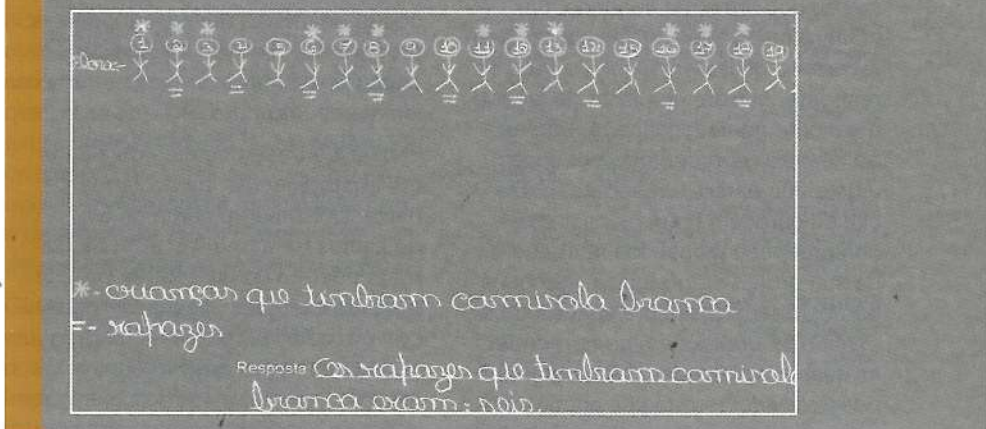 * * * * * * * * * * * *
1 2 3 4 5 6 7 8 9 10 11 12 13 14 15 16 17 18 19
*- crianças que tinham camisola branca
=- rapazes
Resposta Os rapazes que tinham camisola
branca eram: seis.